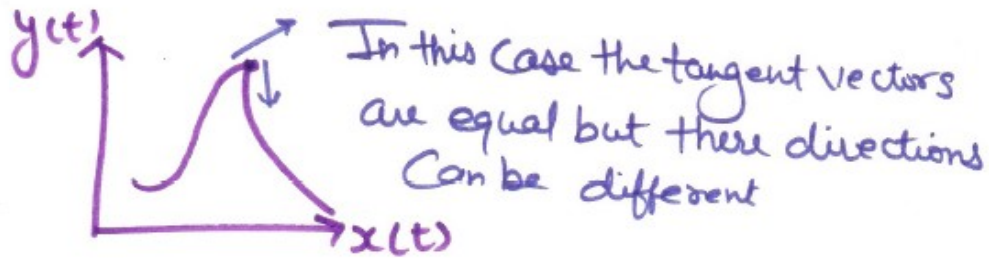 y(t)
In this case the tangent vectors
are equal but there directions
Can be different
x(t)